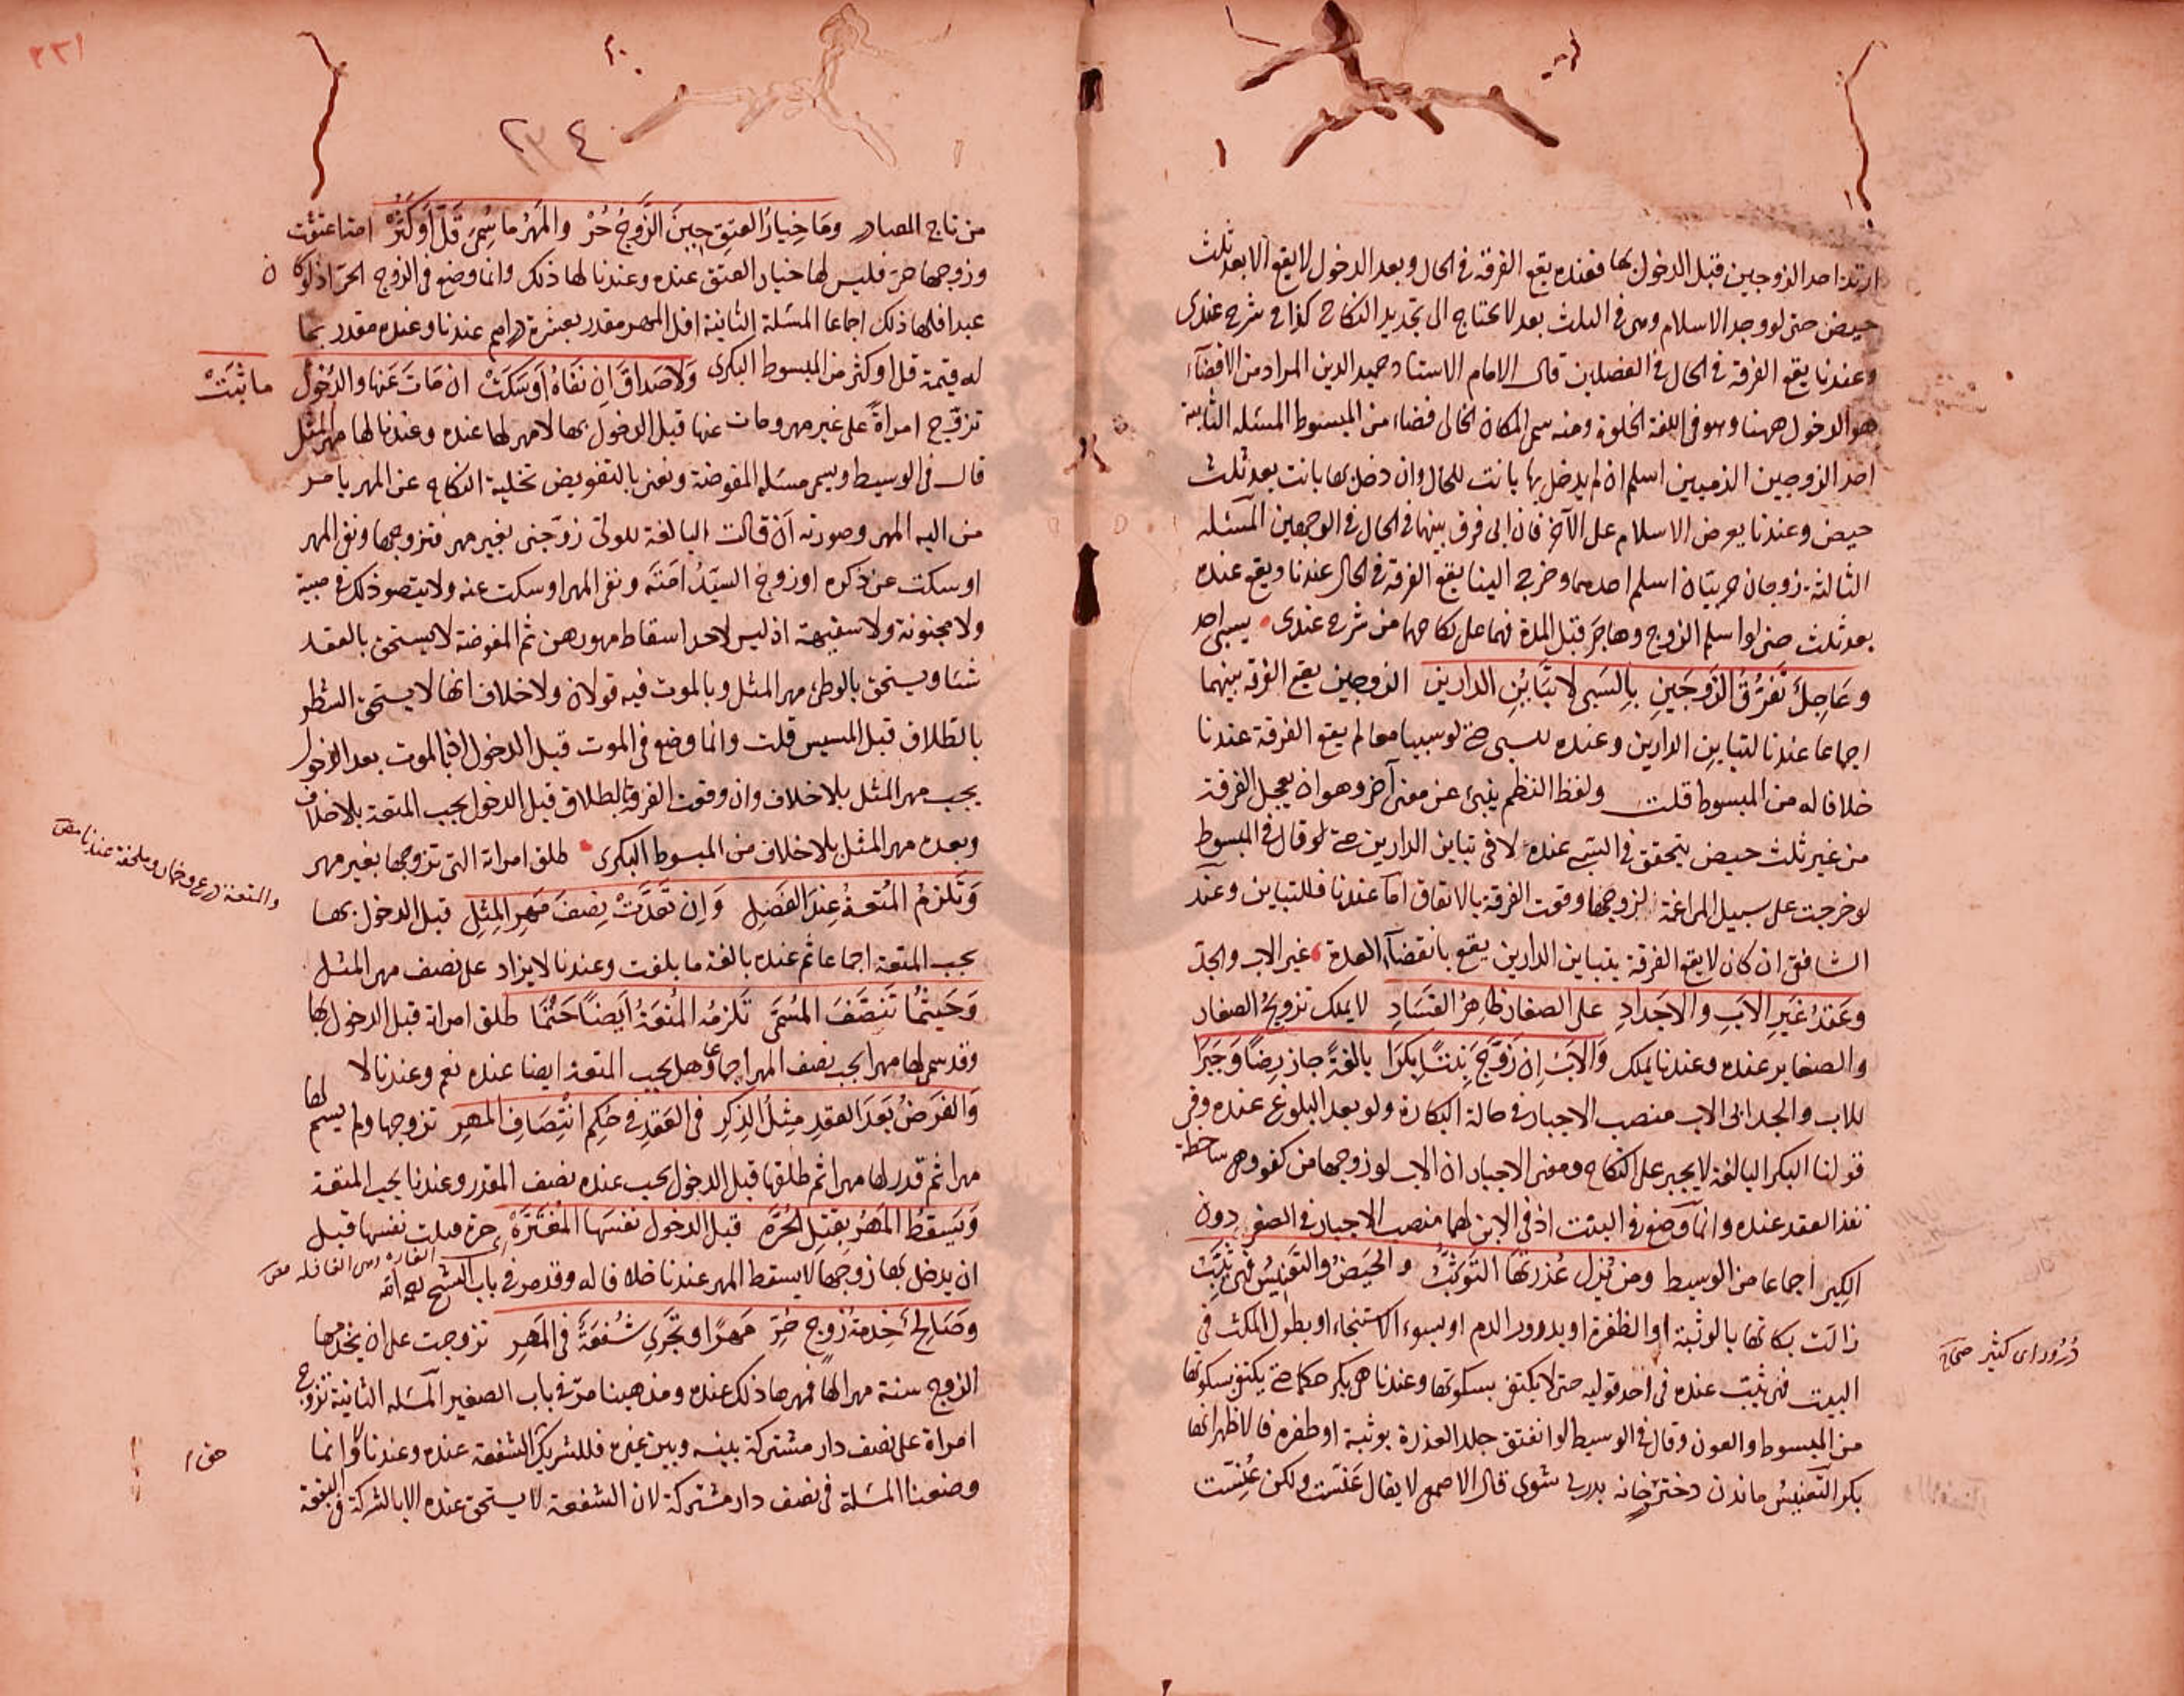 ارتد احد الزوجين قبل الدخول بها فعنده يقع الفرقة في الحال وبعد الدخول لا يقع الا بعد ثلث
حيض حتى لو وجد الاسلام وهي في الثلث بعد لا يحتاج الى تجديد النكاح كذا في شرح عندى
وعندنا يقع الفرقة في الحال في الفصلين قال الامام الاستاد حميد الدين المراد من الافضاء
هو الدخول ههنا وهو في اللغة الخلوة ومنه سمى المكان الخالى فضاء من المبسوط المسئلة الثانية
احد الزوجين الذميين اسلم ان لم يدخل بها بانت للحال وان دخل بها بانت بعد ثلث
حيض وعندنا يعرض الاسلام على الآخر فان ابى فرق بينهما في الحال في الوجهين المسئلة
الثالثة زوجان حربيان اسلم احدهما وخرج الينا يقع الفرقة في الحال عندنا ويقع عنده
بعد ثلث حتى لو اسلم الزوج وهاجر قبل المدة فهما على نكاحهما من شرح عندى يسبى احد
وعاجل تفرق الزوجين بالسبى لا تباين الدارين الزوجين يقع الفرقة بينهما
اجماعا عندنا لتباين الدارين وعنده للسبى حتى لو سبيا معا لم يقع الفرقة عندنا
خلافا له من المبسوط قلت ولفظ النظم ينبئ عن معنى آخر وهو ان يعجل الفرقة
من غير ثلث حيض يتحقق في السبى عنده لا في تباين الدارين حتى لو قال في المبسوط
لو خرجت على سبيل المراغمة لزوجها وقعت الفرقة بالاتفاق اما عندنا فللتباين وعند
الشافعى ان كان لا يقع الفرقة بتباين الدارين يقع بانقضاء العدة غير الاب والجد
وعقد غير الاب والاجداد على الصغار ظاهر الفساد لا يملك تزويج الصغار
والصغاير عنده وعندنا يملك والاب ان زوج بنتا بكرا بالغة جاز رضا وجبرا
للاب والجد ابى الاب منصب الاجبار في حالة البكارة ولو بعد البلوغ عنده وفى
قولنا البكر البالغة لا يجبر على النكاح ومعنى الاجبار ان الاب لو زوجها من كفو وهى ساخطة
نفذ العقد عنده وانما وضع في البنت اذ في الابن لهما منصب الاجبار في الصغر دون
الكبر اجماعا من الوسيط ومن يزل عذرتها التوثب والحيض والتعنيس فهى ثيب
زالت بكارتها بالوثبة او الظفرة او بدرور الدم او بسوء الاستنجاء او بطول المكث في
البيت فهى ثيب عنده في احد قوليه حتى لا يكتفى بسكوتها وعندنا هى بكر حكما حتى يكتفى بسكوتها
من المبسوط والعون وقال في الوسيط لو انفتق جلد العذرة بوثبة او طفرة فالاظهر انها
بكر التعنيس ماندن دختر خانه پدر بى شوى قال الاصمعى لا يقال عنست ولكن عنست
درور اى كثير صحاح
٢٢١
٢٣٤
من تاج المصادر وما خيار العتق حين الزوج حر والمهر ما سمى قل او كثر امة اعتقت
وزوجها حر فليس لها خيار العتق عنده وعندنا لها ذلك وانما وضع في الزوج الحر اذ لو كان
عبدا فلها ذلك اجماعا المسئلة الثانية اقل المهر مقدر بعشرة دراهم عندنا وعنده مقدر بما
له قيمة قل او كثر من المبسوط البكرى ولا صداق ان نفاه او سكت ان مات عنها والدخول ما ثبت
تزوج امراة على غير مهر ومات عنها قبل الدخول بها لا مهر لها عنده وعندنا لها مهر المثل
قال في الوسيط ويسمى مسئلة المفوضة ونعنى بالتفويض تخلية النكاح عن المهر بامر
من اليه المهر وصورته ان قالت البالغة للولى زوجنى بغير مهر فتزوجها ونفى المهر
او سكت عن ذكره او زوج السيد امته ونفى المهر او سكت عنه ولا يتصور ذلك في صبية
ولا مجنونة ولا سفيهة اذ ليس لاحد اسقاط مهورهن ثم المفوضة لا يستحق بالعقد
شئا ويستحق بالوطئ مهر المثل وبالموت فيه قولان ولا خلاف انها لا يستحق الشطر
بالطلاق قبل المسيس قلت وانما وضع في الموت قبل الدخول اذ بالموت بعد الدخول
يجب مهر المثل بلا خلاف وان وقعت الفرقة بالطلاق قبل الدخول يجب المتعة بلا خلاف
وبعده مهر المثل بلا خلاف من المبسوط البكرى طلق امراته التى تزوجها بغير مهر
والمتعة درع وخمار وملحفة عندنا
وتلزم المتعة عند الفصل وان تعدت نصف مهر المثل قبل الدخول بها
يجب المتعة اجماعا ثم عنده بالغة ما بلغت وعندنا لا يزاد على نصف مهر المثل
وحيثما تنصف المسمى تلزمه المتعة ايضا حتما طلق امراته قبل الدخول بها
وقد سمى لها مهرا يجب نصف المهر اجماعا وهل يجب المتعة ايضا عنده نعم وعندنا لا
والفرض بعد العقد مثل الذكر في العقد في حكم انتصاف المهر تزوجها ولم يسم لها
مهرا ثم قدر لها مهرا ثم طلقها قبل الدخول يجب عنده نصف المقدر وعندنا يجب المتعة
ويسقط المهر بقتل الحرة قبل الدخول نفسها المغترة حرة قتلت نفسها قبل
ان يدخل بها زوجها لا يسقط المهر عندنا خلافا له وقد مر في باب الشح
وصالح خدمة زوج حر مهرا وتجرى شفعة في المهر تزوجت على ان يخدمها
الزوج سنة مهرا لها فمهرها ذلك عنده ومذهبنا مر في باب الصغير المسئلة الثانية تزوج
امراة على نصف دار مشتركة بينه وبين غيره فللشريك الشفعة عنده وعندنا لا وانما
وضعنا المسئلة في نصف دار مشتركة لان الشفعة لا يستحق عنده الا بالشركة في البقعة